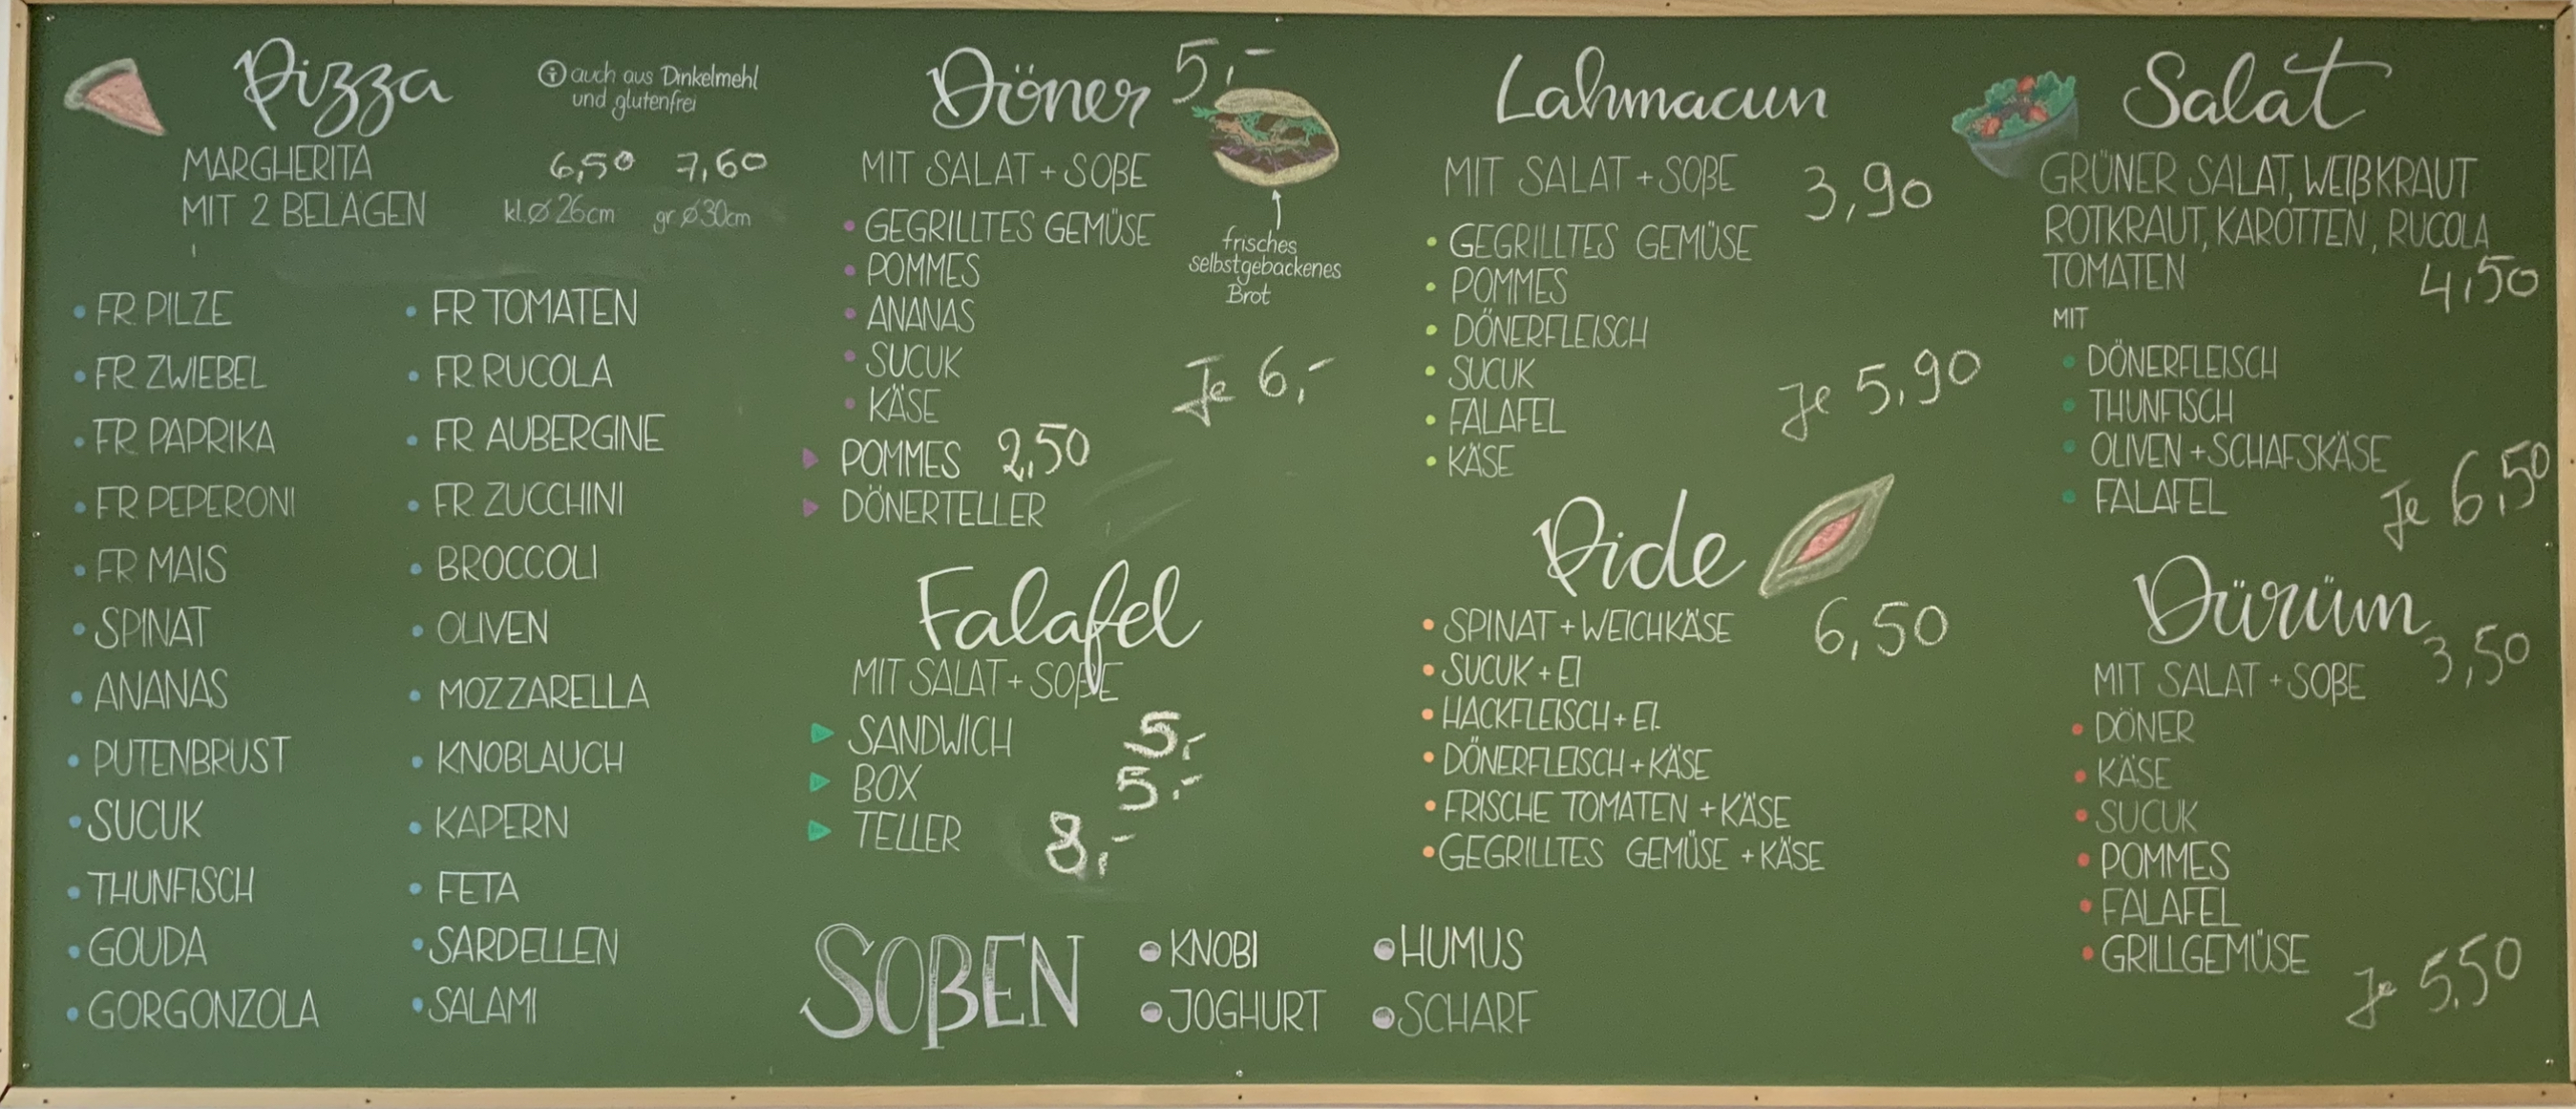 Pizza
ⓘ auch aus Dinkelmehl
und glutenfrei
MARGHERITA 6,50 7,60
MIT 2 BELAGEN kl. Ø 26cm gr Ø30cm
• FR. PILZE
• FR. ZWIEBEL
• FR. PAPRIKA
• FR. PEPERONI
• FR MAIS
• SPINAT
• ANANAS
• PUTENBRUST
• SUCUK
• THUNFISCH
• GOUDA
• GORGONZOLA
• FR TOMATEN
• FR. RUCOLA
• FR AUBERGINE
• FR. ZUCCHINI
• BROCCOLI
• OLIVEN
• MOZZARELLA
• KNOBLAUCH
• KAPERN
• FETA
• SARDELLEN
• SALAMI
Döner 5,-
MIT SALAT + SOßE
• GEGRILLTES GEMÜSE
• POMMES
• ANANAS
• SUCUK
• KÄSE
Je 6,-
frisches
selbstgebackenes
Brot
▶ POMMES 2,50
▶ DÖNERTELLER
Falafel
MIT SALAT + SOßE
▶ SANDWICH 5,-
▶ BOX 5,-
▶ TELLER 8,-
SOßEN
• KNOBI
• JOGHURT
• HUMUS
• SCHARF
Lahmacun
MIT SALAT + SOßE 3,90
• GEGRILLTES GEMÜSE
• POMMES
• DÖNERFLEISCH
• SUCUK
• FALAFEL
• KÄSE
Je 5,90
Pide
• SPINAT + WEICHKÄSE 6,50
• SUCUK + EI
• HACKFLEISCH + EI.
• DÖNERFLEISCH + KÄSE
• FRISCHE TOMATEN + KÄSE
• GEGRILLTES GEMÜSE + KÄSE
Salat
GRÜNER SALAT, WEIßKRAUT
ROTKRAUT, KAROTTEN, RUCOLA
TOMATEN 4,50
MIT
• DÖNERFLEISCH
• THUNFISCH
• OLIVEN + SCHAFSKÄSE
• FALAFEL
Je 6,50
Dürüm
MIT SALAT + SOßE 3,50
• DÖNER
• KÄSE
• SUCUK
• POMMES
• FALAFEL
• GRILLGEMÜSE
Je 5,50